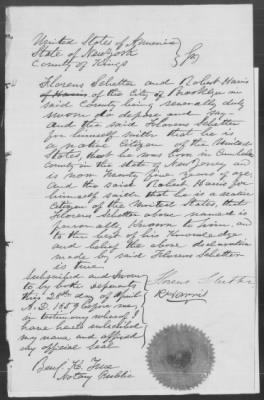 United States of America
State of New York } SS
County of Kings
Florens Schetter and Robert Harris
of the City of Brooklyn in
said County being severally duly
sworn do depose and say
and the said Florens Schetter
for himself saith that he is
a native citizen of the United
States, that he was born in Camden
County in the State of New Jersey and
is now Twenty five years of age,
And the said Robert Harris for
himself saith that he is a
citizen of the United States, that
Florens Schetter above named is
personally known to him, and
to the best of his Knowledge
and belief the above declaration
made by said Florens Schetter
is true.
Subscribed and Sworn
to by both deponents
this 20th day of April
A.D. 1859 before me
in testimony whereof I
have hereto subscribed
my name and affixed
my official seal
Florens Schetter
R Harris
Benj. H.
Notary Public